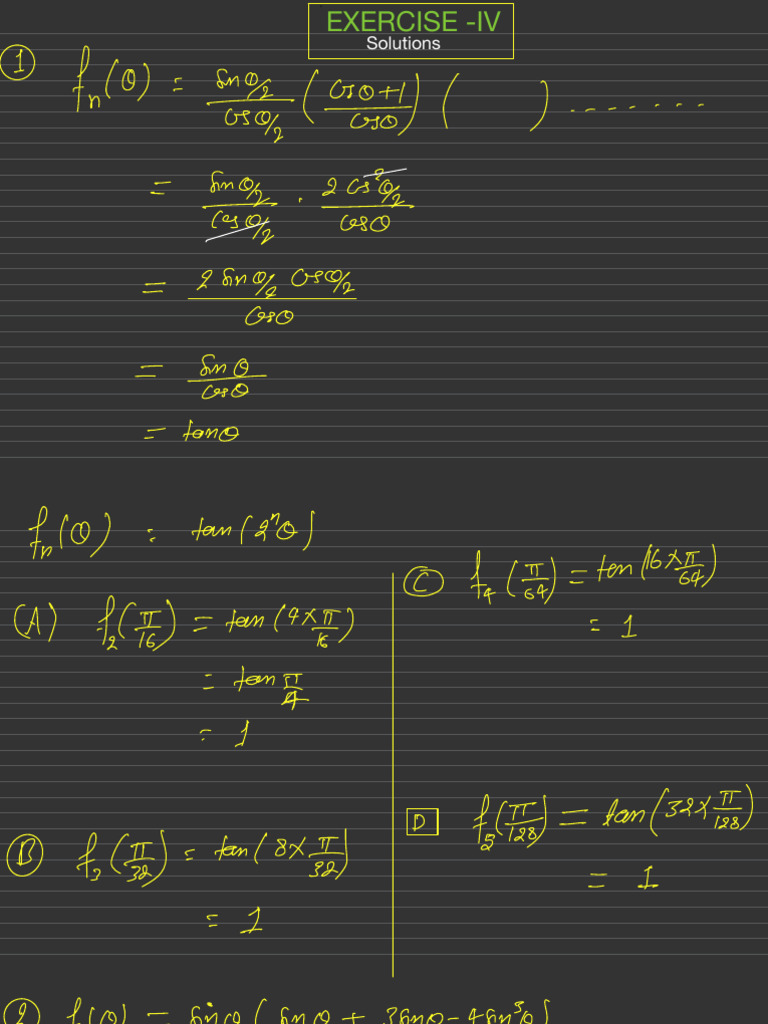 EXERCISE -IV
Solutions
① fₙ(θ) = sinθ/2 / cosθ/2 (cosθ+1 / cosθ) ( ) .......
= sinθ/2 / cosθ/2 . 2cos²θ/2 / cosθ
= 2 sinθ/2 cosθ/2 / cosθ
= sinθ / cosθ
= tanθ
fₙ(θ) = tan(2ⁿθ)
(A) f₂(π/16) = tan(4×π/16)
= tan π/4
= 1
Ⓑ f₃(π/32) = tan(8×π/32)
= 1
Ⓒ f₄(π/64) = tan(16×π/64)
= 1
D f₅(π/128) = tan(32×π/128)
= 1
② f(θ) = sinθ(sinθ + 3sinθ-4sin³θ)